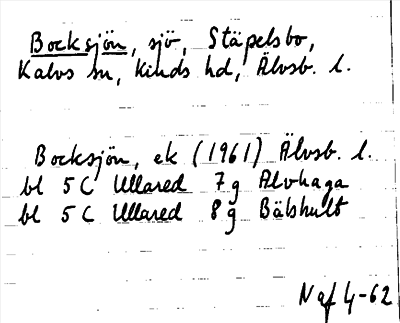 Bocksjön, sjö, Stäpelsbo,
Kalvs sn, Kinds hd, Älvsb. l.
Bocksjön, ek (1961) Älvsb. l.
bl 5C Ullared 7g Alvhaga
bl 5C Ullared 8g Bälshult
N gf 4-62